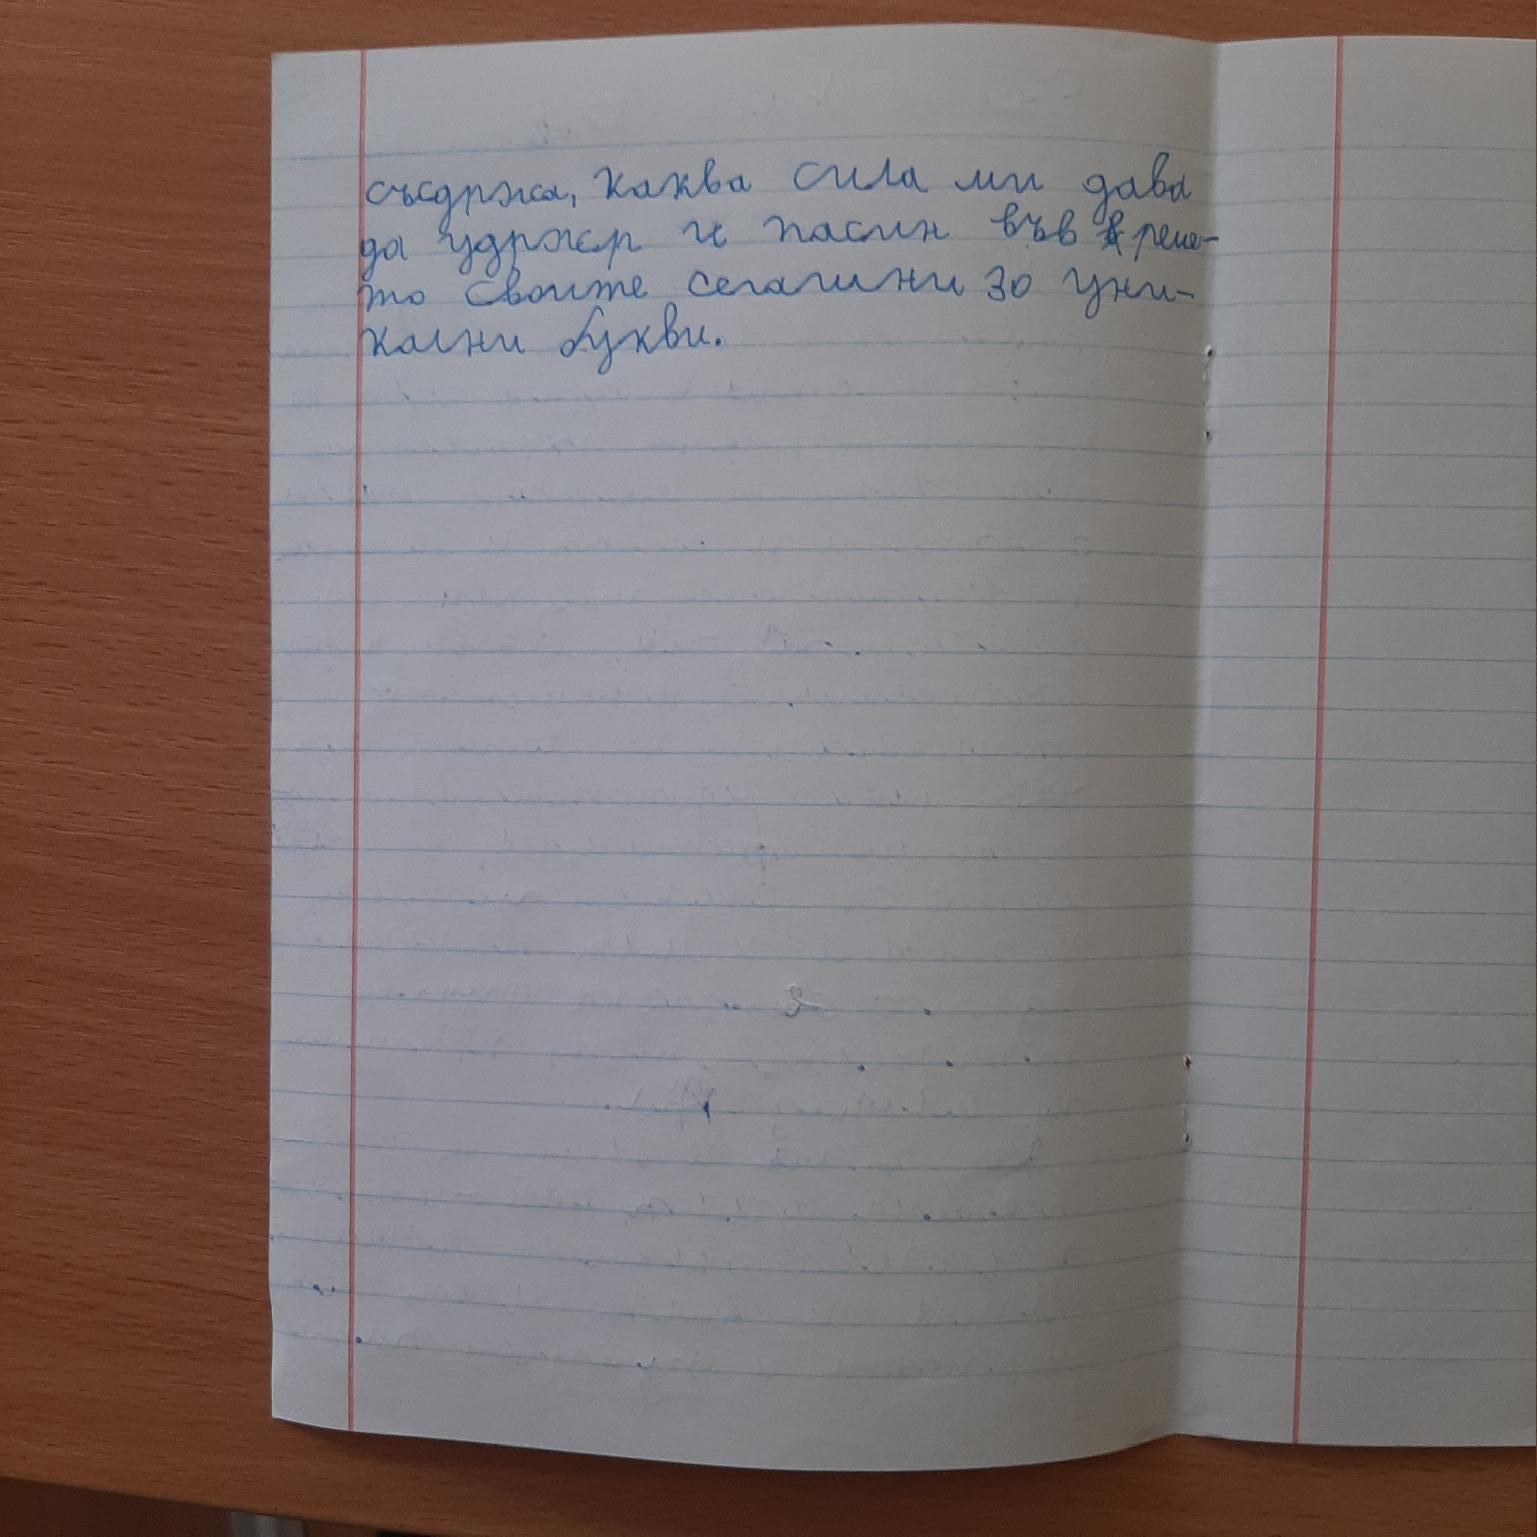 съдржа, каква сила ми дава
да удржер и пасин във време-
то своите сегашни 30 уни-
кални букви.